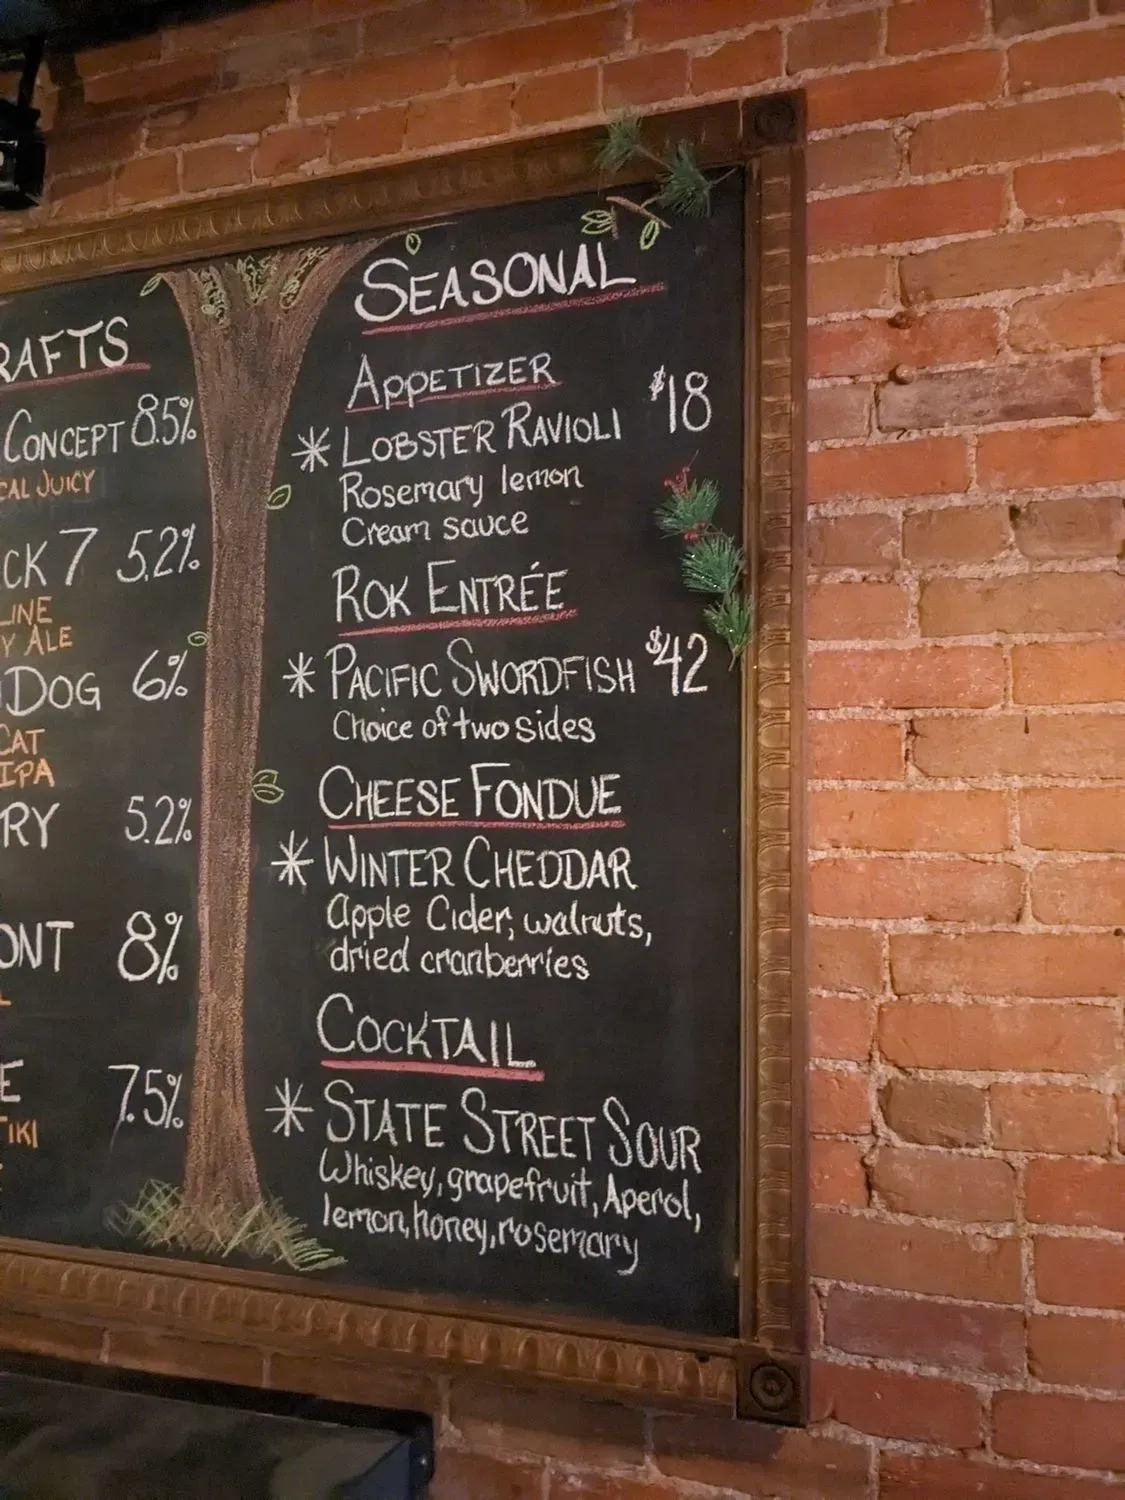 RAFTS
CONCEPT 8.5%
CAL JUICY
CK 7 5.2%
LINE
Y ALE
DOG 6%
CAT
IPA
RY 5.2%
ONT 8%
E 7.5%
TIKI
SEASONAL
APPETIZER
* LOBSTER RAVIOLI $18
Rosemary lemon
Cream sauce
ROK ENTRÉE
* PACIFIC SWORDFISH $42
Choice of two sides
CHEESE FONDUE
* WINTER CHEDDAR
Apple Cider, walnuts,
dried cranberries
COCKTAIL
* STATE STREET SOUR
Whiskey, grapefruit, Aperol,
lemon, honey, rosemary